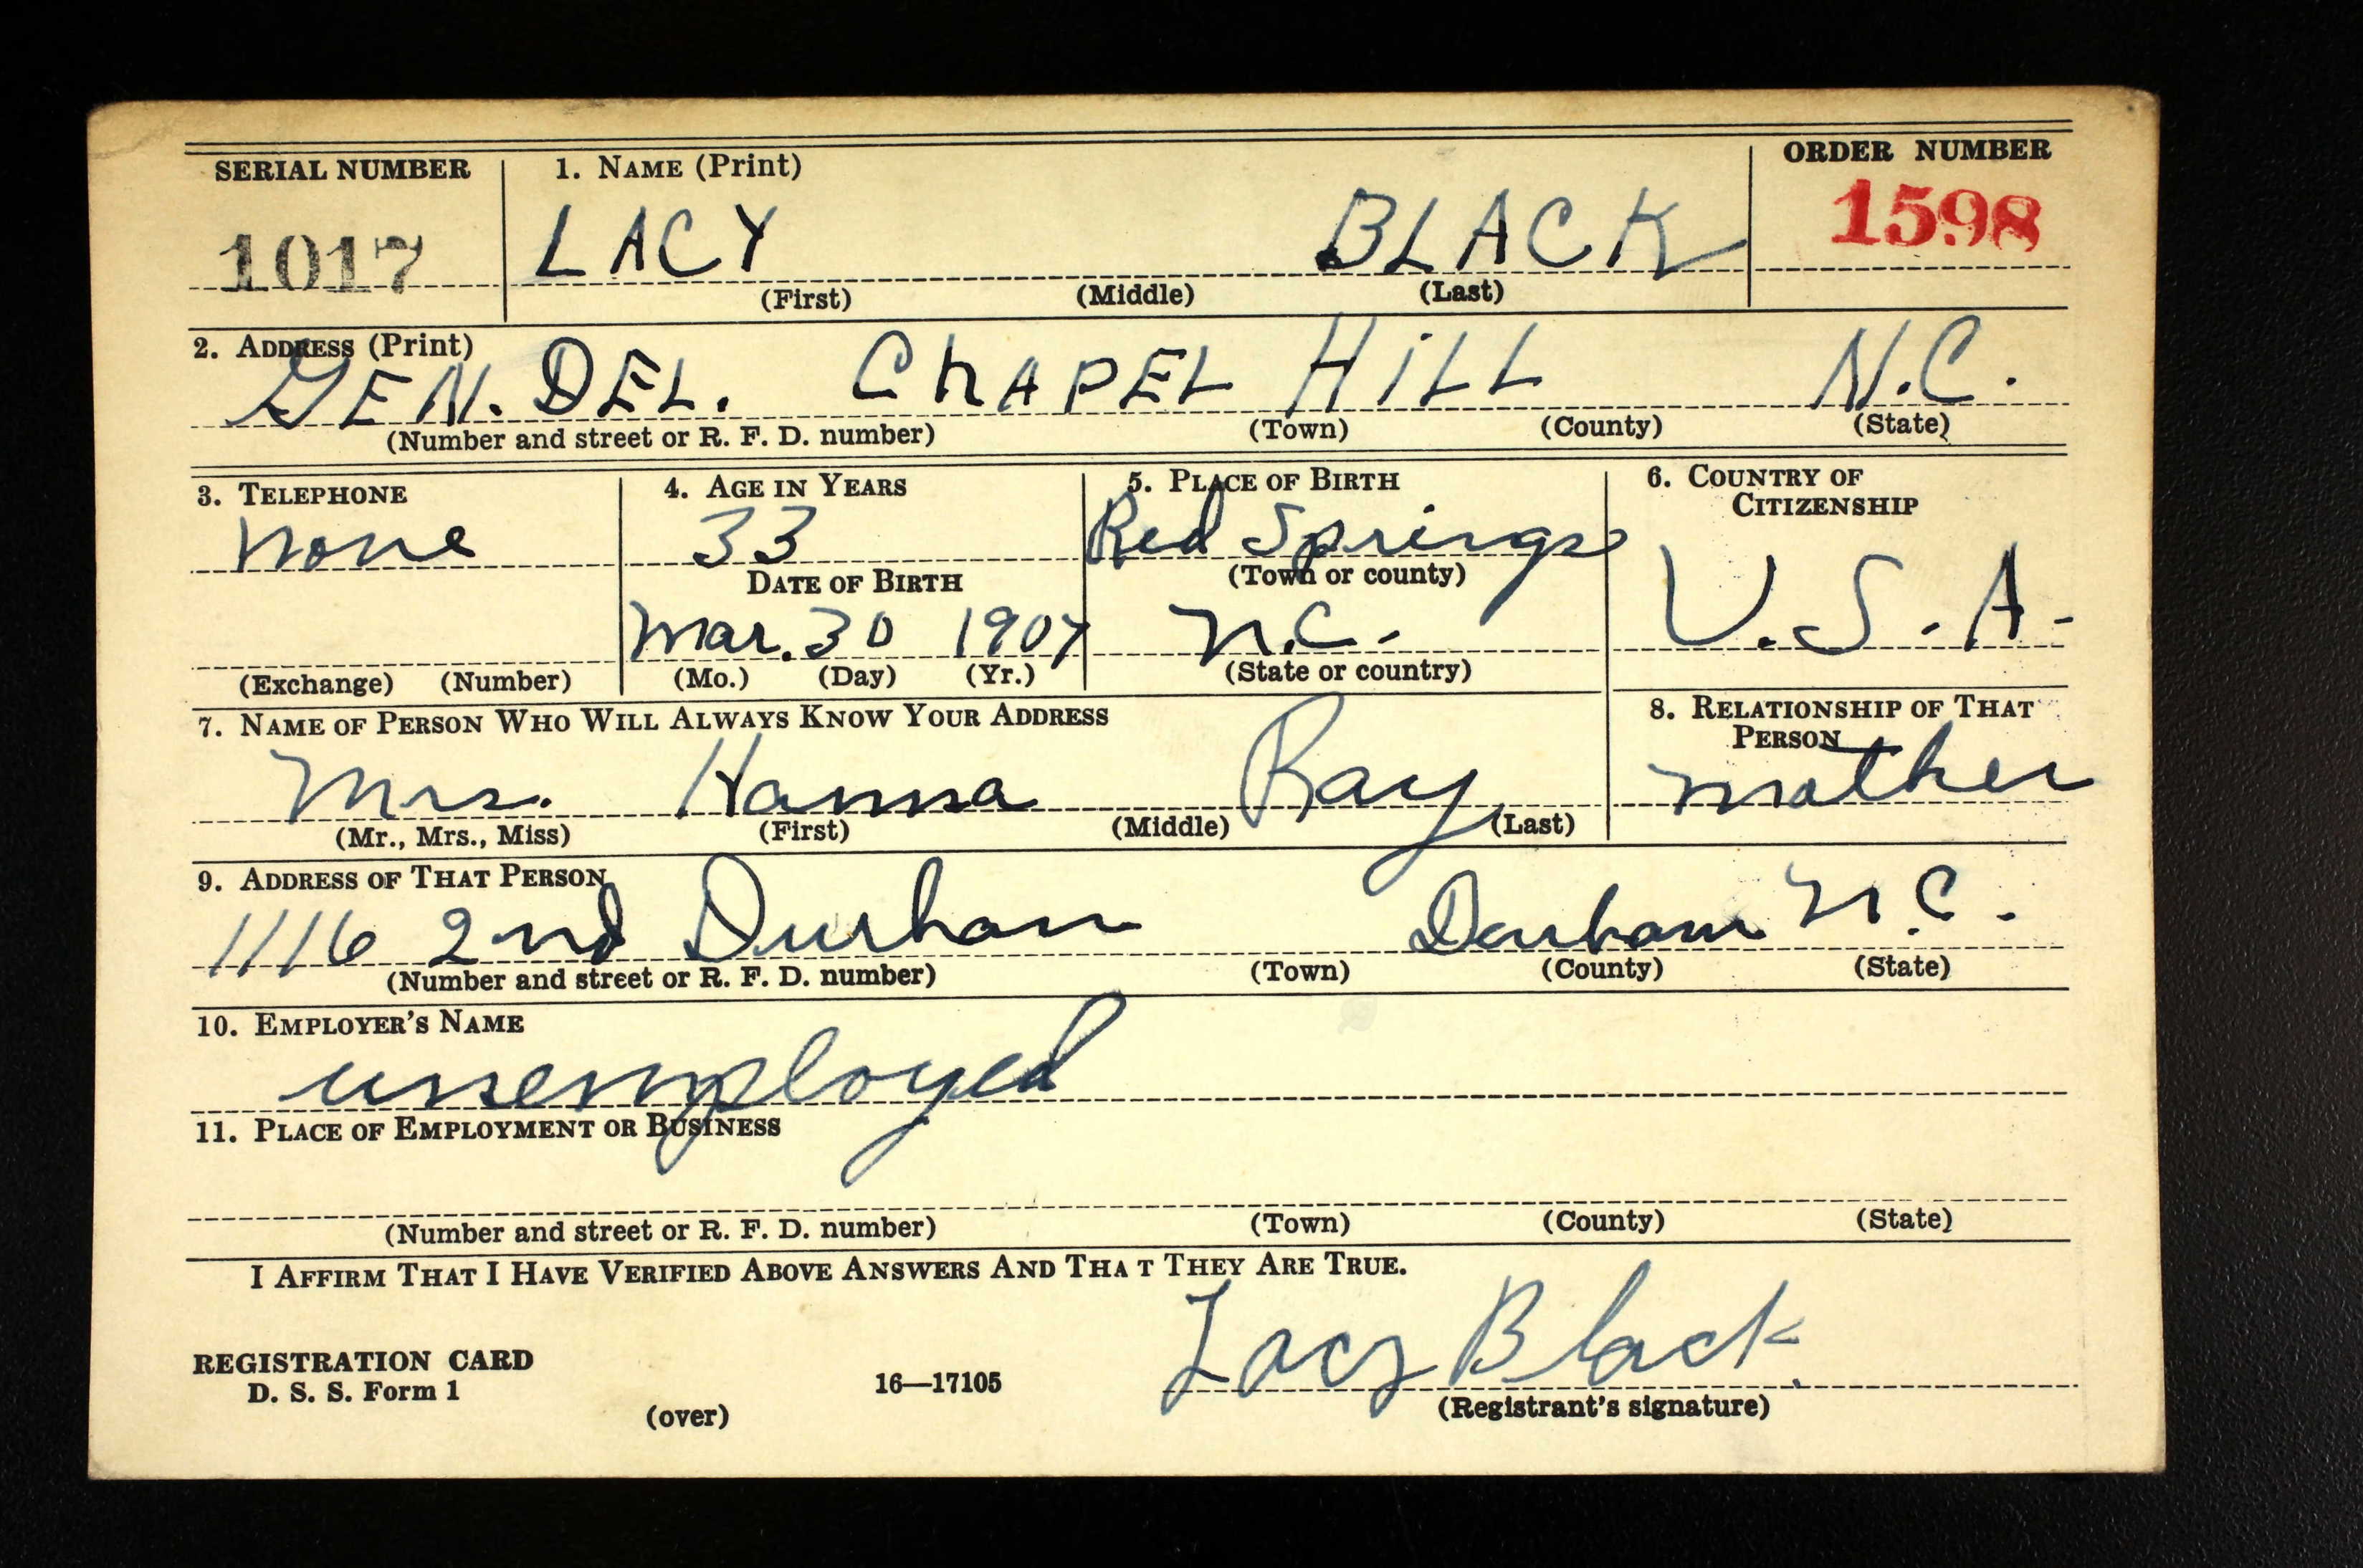 SERIAL NUMBER 1. NAME (Print) ORDER NUMBER
1017 LACY BLACK 1598
(First) (Middle) (Last)
2. ADDRESS (Print)
GEN. DEL. CHAPEL HILL N.C.
(Number and street or R. F. D. number) (Town) (County) (State)
3. TELEPHONE 4. AGE IN YEARS 5. PLACE OF BIRTH 6. COUNTRY OF
CITIZENSHIP
none 33 Red Springs
DATE OF BIRTH (Town or county)
Mar. 30 1907 N.C. U.S.A.
(Exchange) (Number) (Mo.) (Day) (Yr.) (State or country)
7. NAME OF PERSON WHO WILL ALWAYS KNOW YOUR ADDRESS 8. RELATIONSHIP OF THAT
PERSON
Mrs. Hanna Ray mother
(Mr., Mrs., Miss) (First) (Middle) (Last)
9. ADDRESS OF THAT PERSON
1116 2nd Durham Durham N.C.
(Number and street or R. F. D. number) (Town) (County) (State)
10. EMPLOYER'S NAME
unemployed
11. PLACE OF EMPLOYMENT OR BUSINESS
(Number and street or R. F. D. number) (Town) (County) (State)
I AFFIRM THAT I HAVE VERIFIED ABOVE ANSWERS AND THA T THEY ARE TRUE.
Lacy Black
REGISTRATION CARD
D. S. S. Form 1 16—17105 (Registrant's signature)
(over)